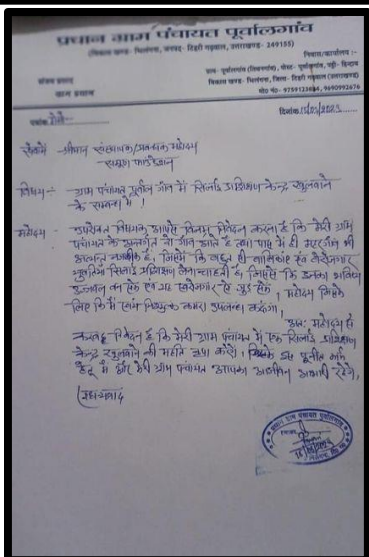 प्रधान ग्राम पंचायत पूर्वालगांव
(विकास खण्ड- भिलंगना, जनपद- टिहरी गढ़वाल, उत्तराखण्ड- 249155)
निवास/कार्यालय :-
ग्राम- पूर्वालगांव
विकास खण्ड- भिलंगना, जिला- टिहरी गढ़वाल (उत्तराखण्ड)
ग्राम प्रधान
मो० नं०- 9690992676
दिनांक
सेवामें श्रीमान संस्थापक/प्रबन्धक महोदय
फाउंडेशन
विषय:- ग्राम पंचायत पूर्वाल गाँव में सिलाई प्रशिक्षण केन्द्र खुलवाने
के सम्बन्ध में।
महोदय उपरोक्त विषयक आपसे विनम्र निवेदन करना है कि मेरी ग्राम
पंचायत के अन्तर्गत गाँव आते हैं तथा पास में ही
जिसमें कि बहुत सी बालिकाएं एवं बेरोजगार
युवतियां सिलाई प्रशिक्षण लेना चाहती हैं, जिससे कि उनका भविष्य
उज्जवल हो सके एवं स्वरोजगार से जुड़ सके, महोदय जिसके
लिए कि मैं निशुल्क कमरा उपलब्ध करूंगा,
अतः महोदय से
करबद्ध निवेदन है कि मेरी ग्राम पंचायत में एक सिलाई प्रशिक्षण
केन्द्र खुलवाने की महति कृपा करेंगे। इस पुनीत कार्य
हेतु मैं और मेरी ग्राम पंचायत आपका आजीवन आभारी रहेंगे,
धन्यवाद
प्रधान ग्राम पंचायत पूर्वालगांव